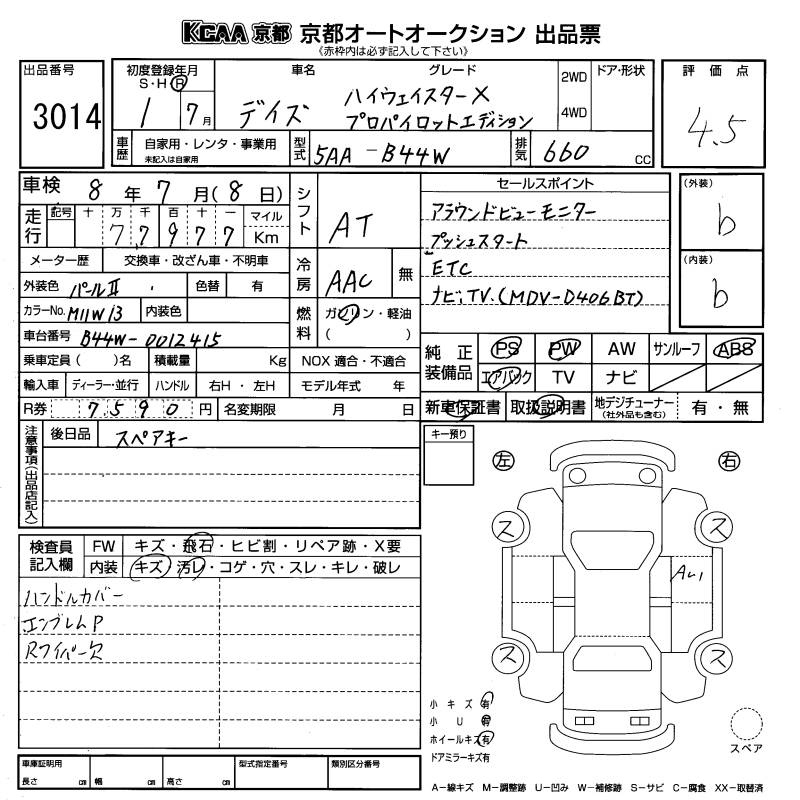 KCAA 京都 京都オートオークション 出品票
《赤枠内は必ず記入して下さい》
出品番号 3014
初度登録年月 S・H・R 1 7月
車名 デイズ
グレード ハイウェイスターX
プロパイロットエディション
2WD
4WD
ドア・形状
評価点 4.5
車歴 自家用・レンタ・事業用
未記入は自家用
型式 5AA-B44W
排気 660 cc
車検 8年 7月(8日)
走行 記号 十 万 千 百 十 一 マイル
77977 Km
メーター歴 交換車・改ざん車・不明車
外装色 パールⅡ 色替 有
カラーNo. M11W13 内装色
車台番号 B44W-0012415
乗車定員( )名 積載量 Kg
輸入車 ディーラー・並行 ハンドル 右H・左H
R券 7590円 名変期限 月 日
シフト AT
冷房 AAC 無
燃料 ガソリン・軽油
( )
NOX 適合・不適合
モデル年式 年
セールスポイント
アラウンドビューモニター
プッシュスタート
ETC
ナビ,TV.(MDV-D406BT)
(外装) b
(内装) b
純正装備品 PS PW AW サンルーフ ABS
エアバック TV ナビ
新車保証書 取扱説明書 地デジチューナー (社外品も含む) 有・無
注意事項(出品店記入)
後日品 スペアキー
キー預り
検査員記入欄
FW キズ・飛石・ヒビ割・リペア跡・X要
内装 キズ・汚レ・コゲ・穴・スレ・キレ・破レ
ハンドルカバー
エンブレムP
Rワイパー欠
左 右
ス ス
AU1
ス ス
小キズ有
小U有
ホイールキズ有
ドアミラーキズ有
スペア
車庫証明用
長さ cm 幅 cm 高さ cm
型式指定番号
類別区分番号
A-線キズ M-調整跡 U-凹み W-補修跡 S-サビ C-腐食 XX-取替済